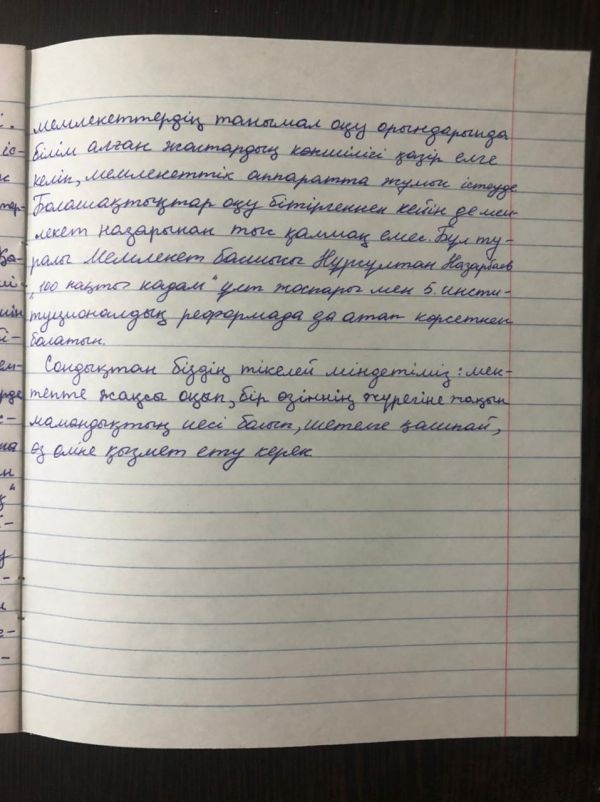 мемлекеттердің танымал оқу орындарында
білім алған жастардың көпшілігі қазір елге
келіп, мемлекеттік аппаратта жұмыс істеуде
Болашақтықтар оқу бітіргеннен кейін де мем-
лекет назарынан тыс қалмақ емес. Бұл ту-
ралы Мемлекет басшысы Нұрсұлтан Назарбаев
„100 нақты қадам" ұст жоспары мен 5. инсти-
туционалдық реформада да атап көрсеткен
болатын.
Сондықтан біздің тікелей міндетіміз: мек-
тепте жақсы оқып, бір өзіннің жүрегіне жақын
мамандықтың иесі болып, шетелге қашпай,
өз еліне қызмет ету керек